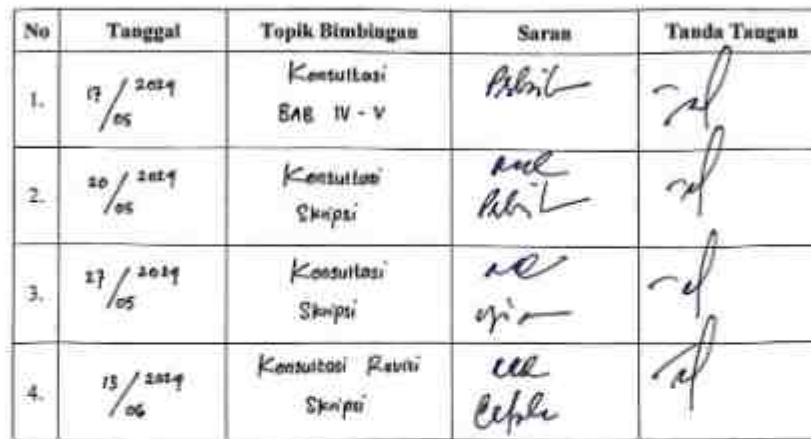 No Tanggal Topik Bimbingan Saran Tanda Tangan
1. 17/05 2024 Konsultasi
BAB IV - V
2. 20/05 2024 Konsultasi
Skripsi
3. 27/05 2024 Konsultasi
Skripsi
4. 13/06 2024 Konsultasi Revisi
Skripsi